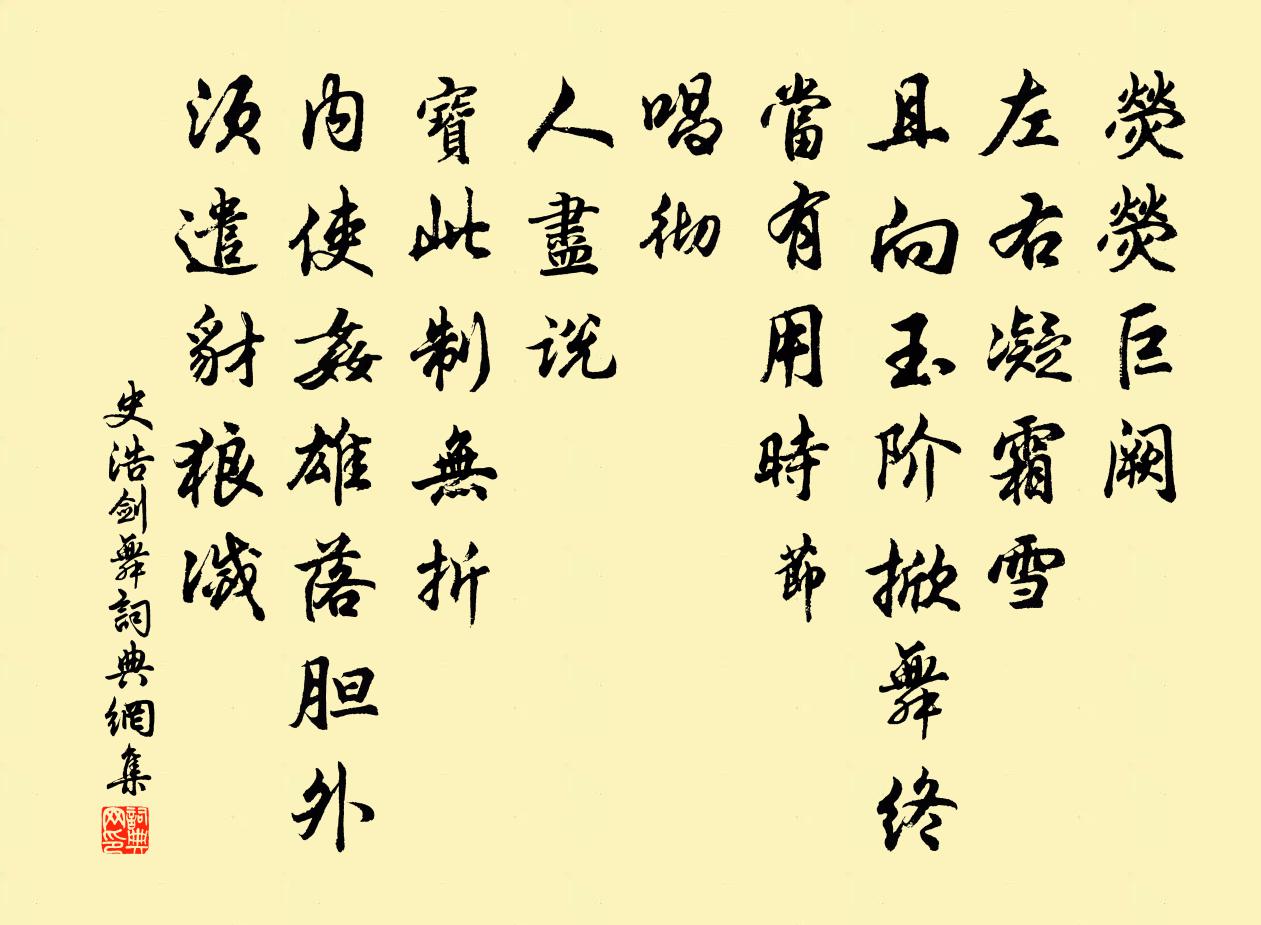 熒熒巨阙
左右凝霜雪
且向玉阶掀舞終
當有用時節
唱彻
人盡说
寶此制無折
内使姦雄落胆外
须遣豺狼滅
史浩剑舞詞典網集
詞典
网印